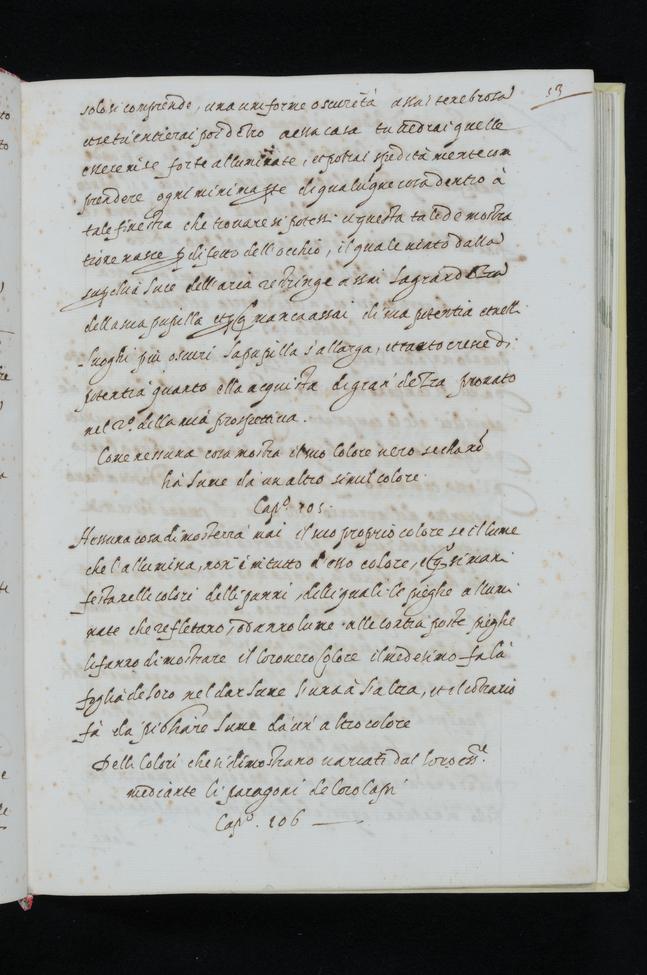 53
solo si comprende, una uniforme oscurità assai tenebrosa
et se tu entierai poi dẽtro a essa casa tu uedrai quelle
esser in se forte alluminate, et potrai speditamente com
prendere ogni minima parte di qualũque cosa dentro à
tale finestra che trouare si potessi questa tale demostra
tione nasce di difetto dell'occhio, il quale uinto dalla
souerchia luce dell'aria restringe assai la grandezza
della sua pupilla et manca assai di sua potentia et nelli
luoghi più oscuri la pupilla s'allarga, et tanto cresce di
potentia quanto ella acquista di grandezza prouato
nel 2.º della mia prospettiua.
Come nessuna cosa mostra il suo colore uero se ella nõ
hà lume da un altro simil colore.
Cap.º 105.
Nessuna cosa dimosterrà mai il suo proprio colore se il lume
che l'allumina, non è in tutto d'esso colore, et si mani
festa nelli colori delli panni, delli quali le pieghe allumi
nate che refletano, ò danno lume alle contra poste pieghe
li fanno dimostrare il loro uero colore il medesimo fà la
foglia de l'oro nel dar lume l'una à l'altra, et il cõtrario
fà da pigliare lume da un' altro colore
Delli Colori che si dimostrano uariati dal loro ess.e
mediante li paragoni de loro Capi
Cap.º 106